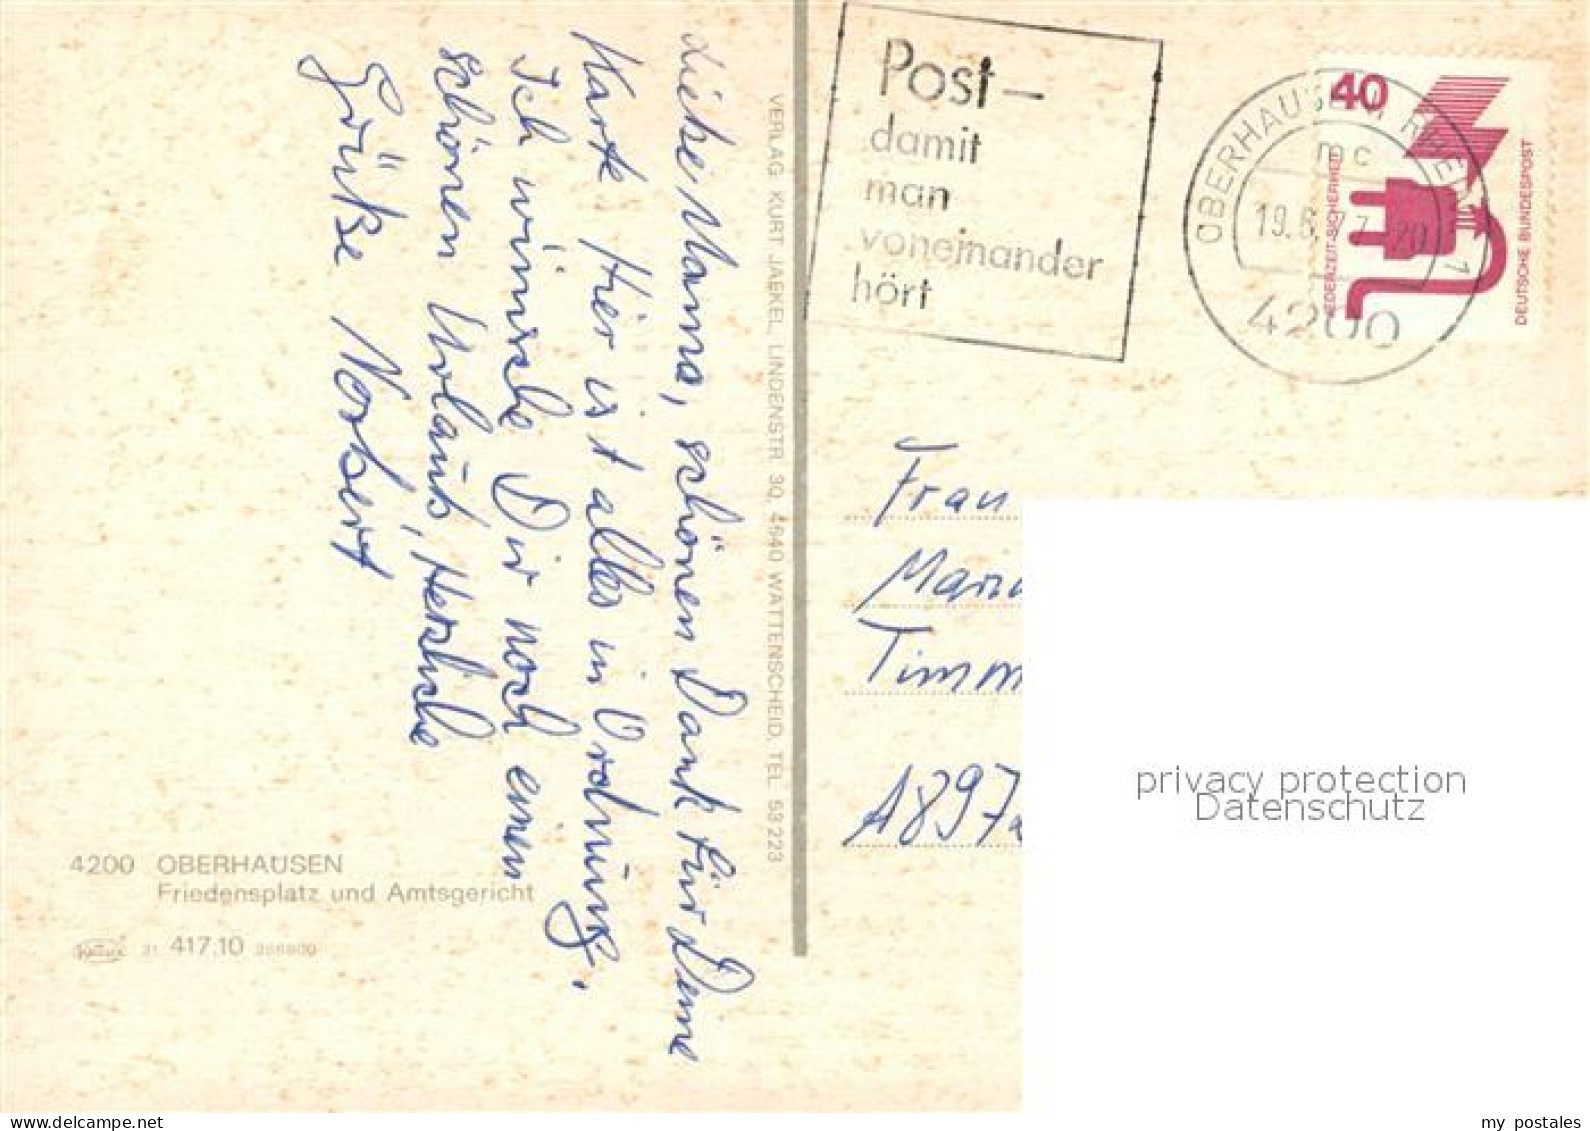 Liebe Mama, schönen Dank für Deine
Karte. Hier ist alles in Ordnung.
Ich wünsche Dir noch einen
schönen Urlaub, Herzliche
Grüße Norbert
VERLAG KURT JAEKEL, LINDENSTR. 30, 4640 WATTENSCHEID, TEL. 53223
4200 OBERHAUSEN
Friedensplatz und Amtsgericht
417.10
Post –
damit
man
voneinander
hört
OBERHAUSEN, RHEINL 1
mc
4200
40
JEDERZEIT-SICHERHEIT
DEUTSCHE BUNDESPOST
Frau
Timm
A897
privacy protection
Datenschutz
my postales